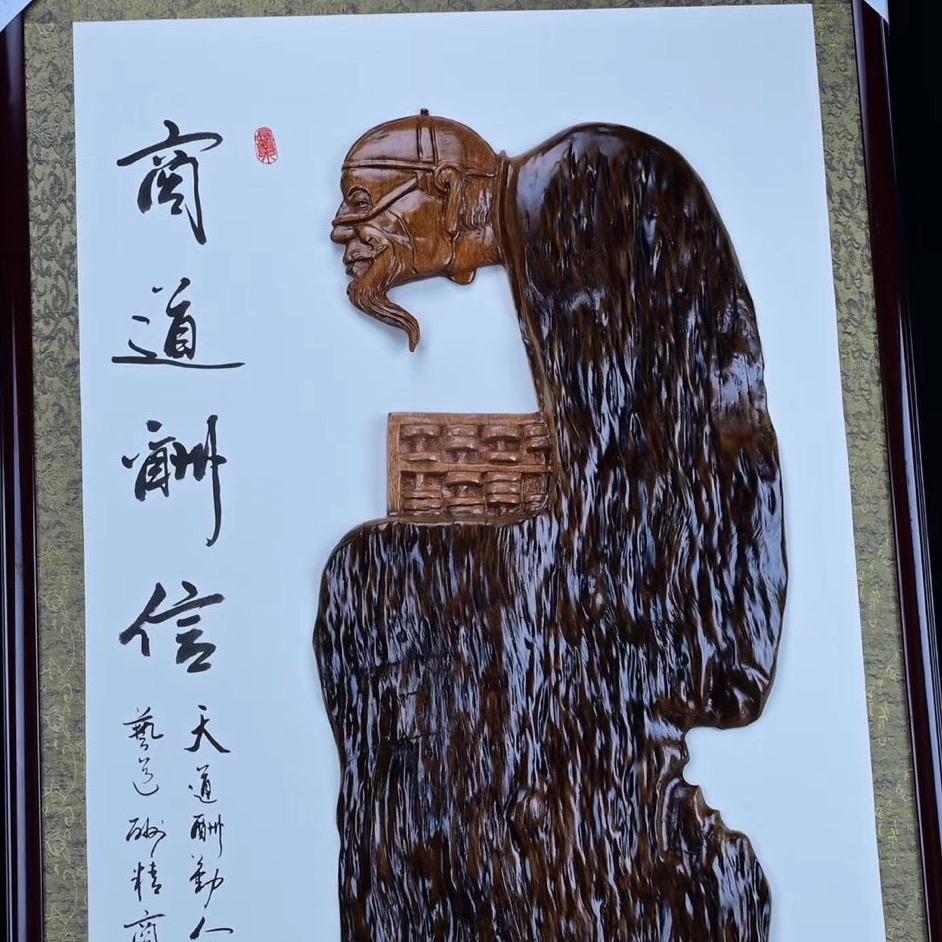 商道酬信
天道酬勤人
藝道酬精商